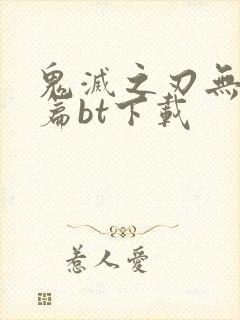 鬼滅之刃無
篇bt下載
惹人愛